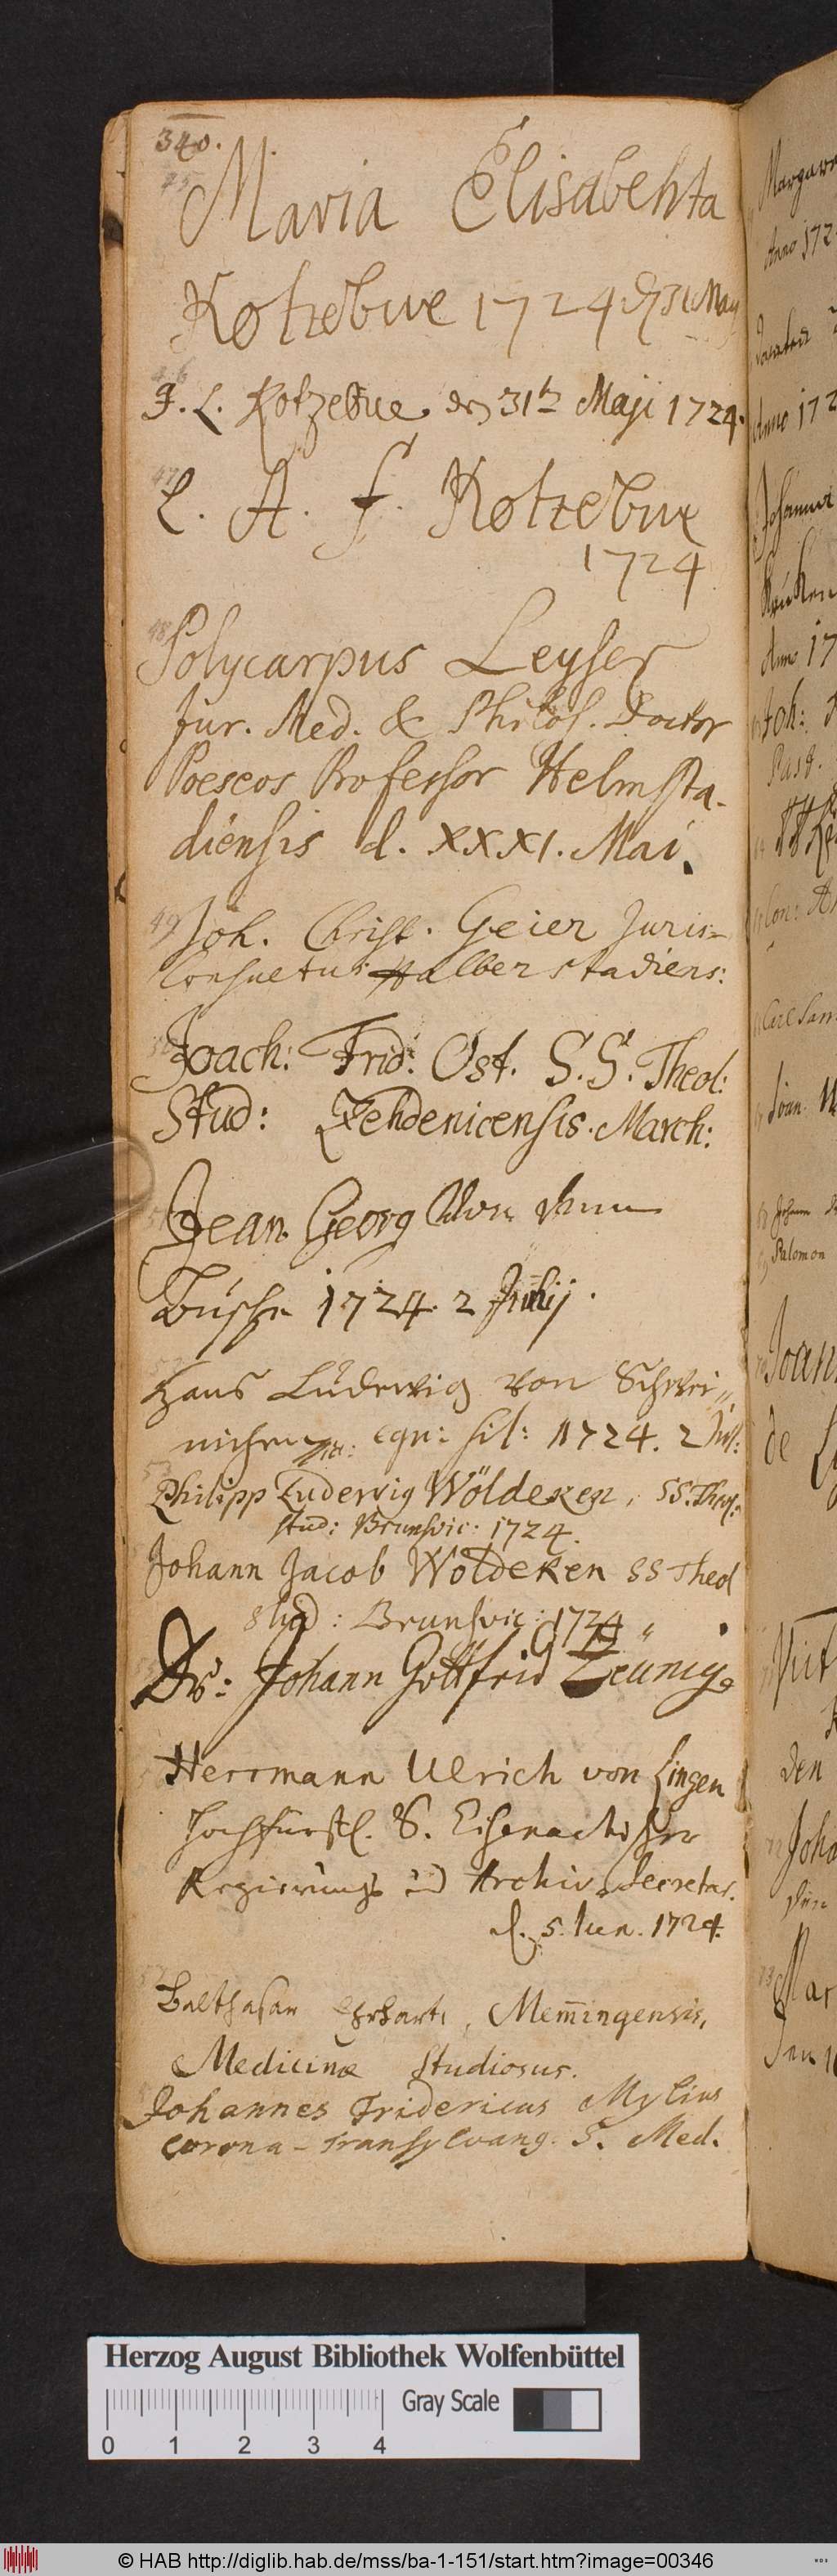 340.
45
Maria Elisabehta
Kotzebue 1724 d 31 May
46
J. L. Kotzebue. den 31t Maji 1724.
47
L. A. f. Kotzebue
1724
48
Polycarpus Leyser
Jur. Med. & Philos. Doctor
Poeseos Professor Helmsta-
diensis d. XXXI. Mai.
49
Joh. Christ. Geier Juris=
Consultus Halberstadiens:
Joach: Frid: Ost. S.S. Theol:
Stud: Zehdenicensis. March:
Jean Georg Von dem
Busche 1724. 2 Junij.
Hans Ludewig von Schwei„
nichen eqv: sil: 1724. 2 Jun:
53
Philipp Ludewig Wöldeken, SS. Theol:
stud: Brunsvic: 1724.
Johann Jacob Wöldeken SS Theol
Stud: Brunsvic: 1724
Dr: Johann Gottfrid Zeünig.
Herrmann Ulrich von Lingen
Hochfürstl. S. Eisenachischer
Regierungs und Archiv Secretar.
d. 5. Jun. 1724.
57
Balthasar Ehrhart, Mem̄ingensis,
Medicinæ Studiosus.
Johannes Fridericus Mylius
Corona-Transylvang. S. Med.
Anno 172
Anno 172
Anno 17
Joh:
Past.
Carl Sam
Joan
Salomon
Joan
de
den
Joha
Herzog August Bibliothek Wolfenbüttel
0 1 2 3 4
Gray Scale
© HAB http://diglib.hab.de/mss/ba-1-151/start.htm?image=00346